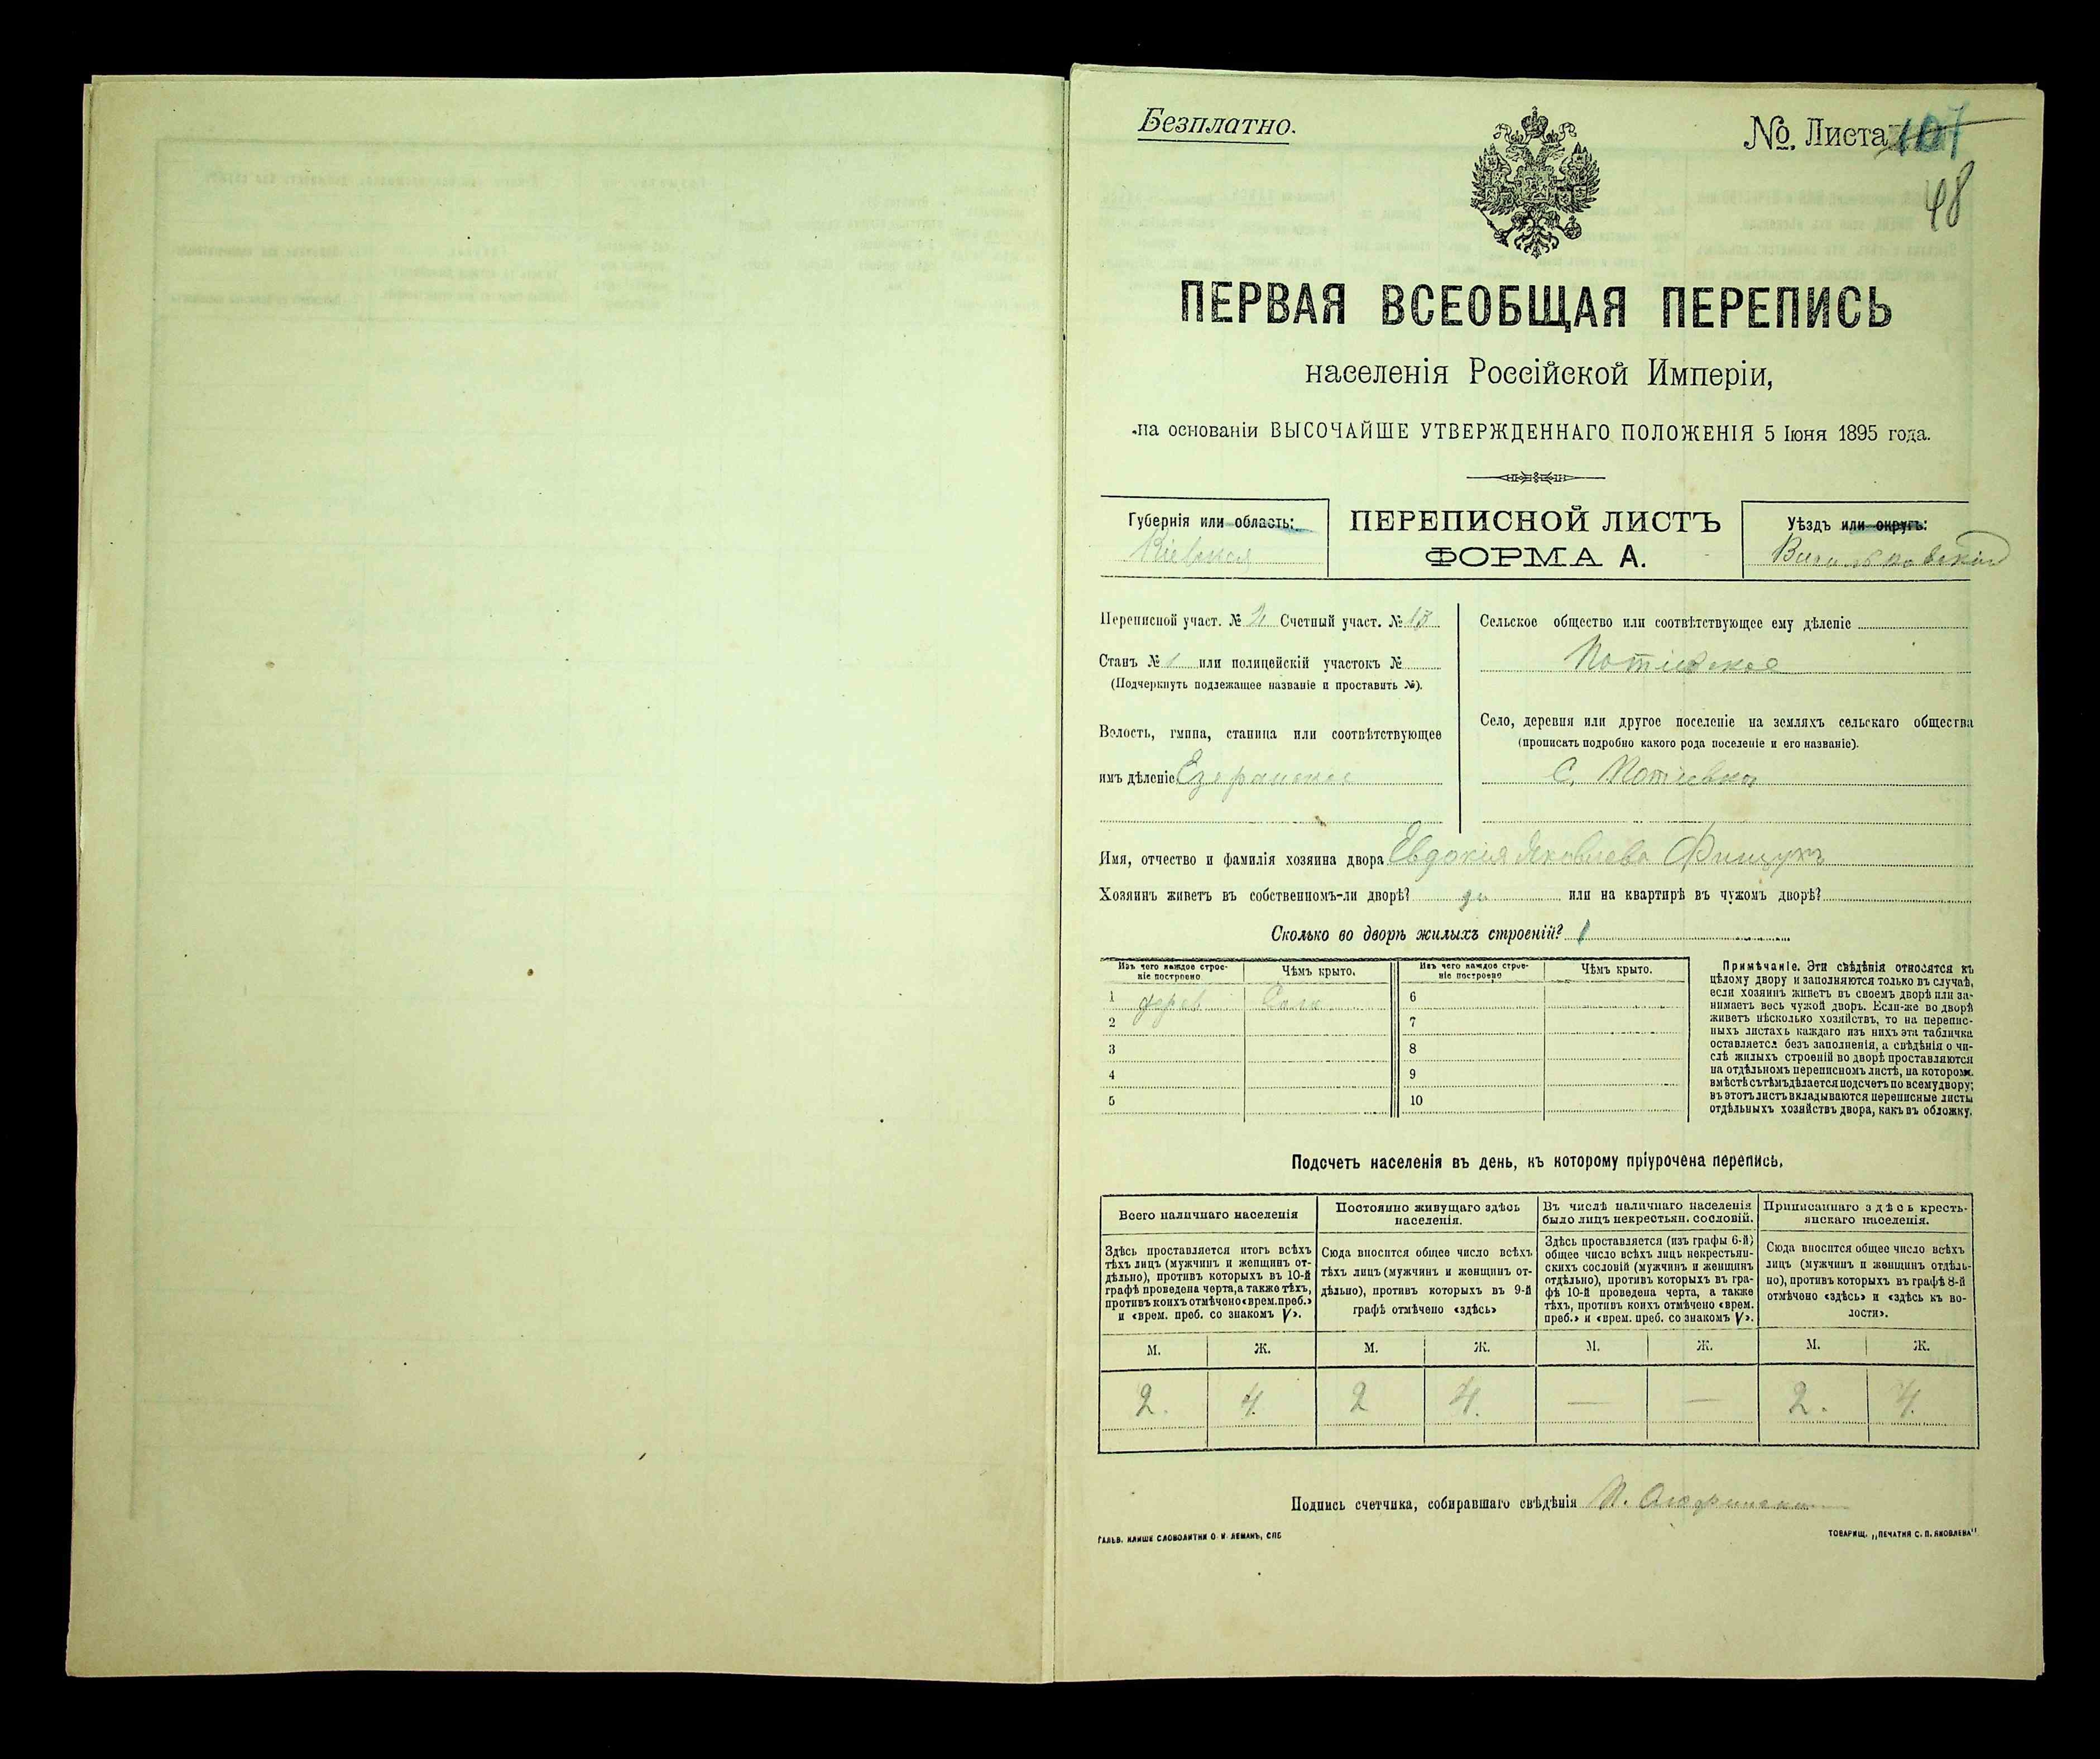 Безплатно.
№. Листа 107
48
ПЕРВАЯ ВСЕОБЩАЯ ПЕРЕПИСЬ
населенія Россійской Имперіи,
на основаніи ВЫСОЧАЙШЕ УТВЕРЖДЕННАГО ПОЛОЖЕНІЯ 5 Іюня 1895 года.
Губернія или область:
Кіевская
ПЕРЕПИСНОЙ ЛИСТЪ
ФОРМА А.
Уѣздъ или округъ:
Васильковскій
Переписной участ. № 2 Счетный участ. № 13
Станъ № 1 или полицейскій участокъ №
(Подчеркнуть подлежащее названіе и проставить №).
Волость, гмина, станица или соотвѣтствующее
имъ дѣленіе Езерянское
Сельское общество или соотвѣтствующее ему дѣленіе
Потіевское
Село, деревня или другое поселеніе на земляхъ сельскаго общества
(прописать подробно какого рода поселеніе и его названіе).
С. Потіевка
Имя, отчество и фамилія хозяина двора Евдокія Яковлева Фищукъ
Хозяинъ живетъ въ собственномъ-ли дворѣ? да или на квартирѣ въ чужомъ дворѣ?
Сколько во дворѣ жилыхъ строеній? 1
Изъ чего каждое строеніе построено
Чѣмъ крыто.
Изъ чего каждое строеніе построено
Чѣмъ крыто.
1 дерев. Солом.
2
3
4
5
6
7
8
9
10
Примѣчаніе. Эти свѣдѣнія относятся къ
цѣлому двору и заполняются только въ случаѣ,
если хозяинъ живетъ въ своемъ дворѣ или за-
нимаетъ весь чужой дворъ. Если-же во дворѣ
живетъ нѣсколько хозяйствъ, то на перепис-
ныхъ листахъ каждаго изъ нихъ эта табличка
оставляется безъ заполненія, а свѣдѣнія о чи-
слѣ жилыхъ строеній во дворѣ проставляются
на отдѣльномъ переписномъ листѣ, на котором.
вмѣстѣ съ тѣмъ дѣлается подсчетъ по всему двору;
въ этотъ листъ вкладываются переписные листы
отдѣльныхъ хозяйствъ двора, какъ въ обложку.
Подсчетъ населенія въ день, къ которому пріурочена перепись.
Всего наличнаго населенія
Здѣсь проставляется итогъ всѣхъ
тѣхъ лицъ (мужчинъ и женщинъ от-
дѣльно), противъ которыхъ въ 10-й
графѣ проведена черта, а также тѣхъ,
противъ коихъ отмѣчено «врем. преб.»
и «врем. преб. со знакомъ V».
Постоянно живущаго здѣсь
населенія.
Сюда вносится общее число всѣхъ
тѣхъ лицъ (мужчинъ и женщинъ от-
дѣльно), противъ которыхъ въ 9-й
графѣ отмѣчено «здѣсь»
Въ числѣ наличнаго населенія
было лицъ некрестьян. сословій.
Здѣсь проставляется (изъ графы 6-й)
общее число всѣхъ лицъ некрестьян-
скихъ сословій (мужчинъ и женщинъ
отдѣльно), противъ которыхъ въ гра-
фѣ 10-й проведена черта, а также
тѣхъ, противъ коихъ отмѣчено «врем.
преб.» и «врем. преб. со знакомъ V».
Приписаннаго здѣсь кресть-
янскаго населенія.
Сюда вносится общее число всѣхъ
лицъ (мужчинъ и женщинъ отдѣль-
но), противъ которыхъ въ графѣ 8-й
отмѣчено «здѣсь» и «здѣсь къ во-
лости».
М. Ж. М. Ж. М. Ж. М. Ж.
2. 4. 2 4. — — 2. 4.
Подпись счетчика, собиравшаго свѣдѣнія
ГАЛЬВ. КЛИШЕ СЛОВОЛИТНИ О. И. ЛЕМАНЪ, СПБ
ТОВАРИЩ. „ПЕЧАТНЯ С. П. ЯКОВЛЕВА"